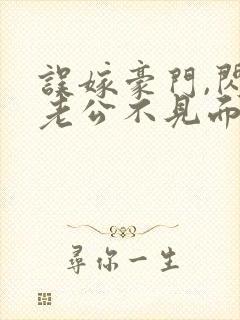 誤嫁豪門,閃
老公不見而
尋你一生